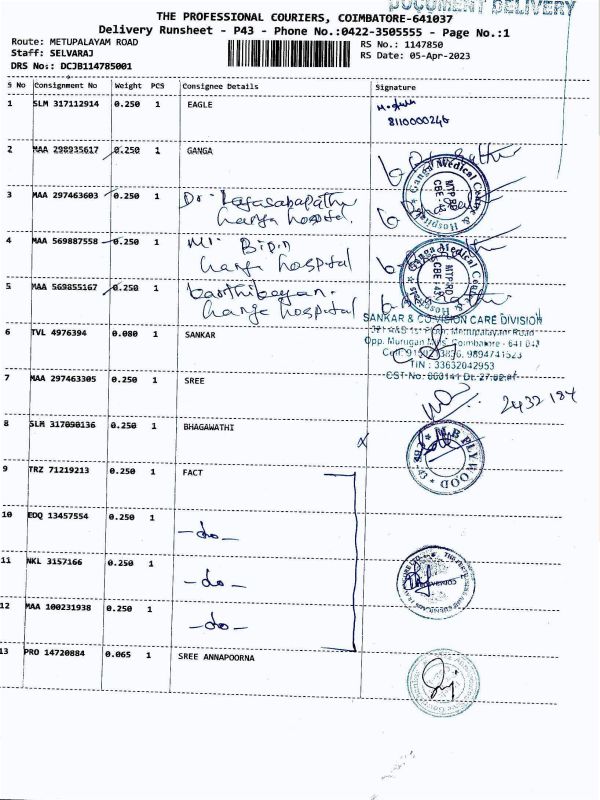 DOCUMENT DELIVERY
THE PROFESSIONAL COURIERS, COIMBATORE-641037
Delivery Runsheet - P43 - Phone No.:0422-3505555 - Page No.:1
Route: METUPALAYAM ROAD RS No.: 1147850
Staff: SELVARAJ RS Date: 05-Apr-2023
DRS No.: DCJB114785001
S No Consignment No Weight PCS Consignee Details Signature
1 SLM 317112914 0.250 1 EAGLE
8110000246
2 MAA 298935617 0.250 1 GANGA
Ganga Medical Centre & Hospitals
MTP.RD
CBE 43
3 MAA 297463603 0.250 1 Dr.
Ganga hospital.
4 MAA 569887558 0.250 1 Mr. Bipin
Ganga hospital
Ganga Medical Centre & Hospitals
MTP.RD
CBE 43
5 MAA 569855167 0.250 1 Karthikeyan.
Ganga hospital
SANKAR & CO-VISION CARE DIVISION
Opp. Murugan Mills, Coimbatore - 641 043
9894741523
TIN : 33632042953
6 TVL 4976394 0.080 1 SANKAR
7 MAA 297463305 0.250 1 SREE
2432184
8 SLM 317090136 0.250 1 BHAGAWATHI
M.B PLYWOOD
9 TRZ 71219213 0.250 1 FACT
10 EDQ 13457554 0.250 1 -do-
11 NKL 3157166 0.250 1 -do-
12 MAA 100231938 0.250 1 -do-
13 PRO 14720884 0.065 1 SREE ANNAPOORNA